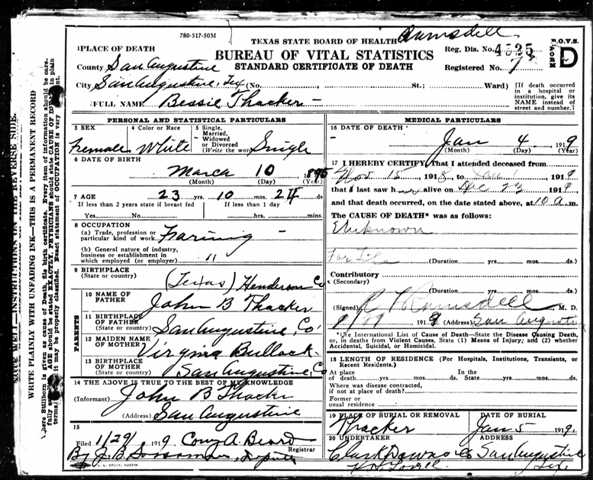 Ramsdell
780-517-50M
TEXAS STATE BOARD OF HEALTH
BUREAU OF VITAL STATISTICS
STANDARD CERTIFICATE OF DEATH
B.O.V.S.
FORM
D
Reg. Dis. No.
Registered No. 7
PLACE OF DEATH
County San Augustine
City San Augustine, Tex (No. St.; Ward)
(If death occurred in a hospital or institution, give its NAME instead of street and number.)
FULL NAME Bessie Thacker
PERSONAL AND STATISTICAL PARTICULARS
3 SEX
Female
4 Color or Race
White
5 Single, Married, Widowed or Divorced (Write the word)
Single
6 DATE OF BIRTH
March 10
(Month) (Day) (Year)
7 AGE
23 yrs. 10 mos. 24 ds.
If less than 2 years state if breast fed
Yes No
If less than 1 day
hrs. min.
8 OCCUPATION
(a) Trade, profession or particular kind of work
(b) General nature of industry, business or establishment in which employed or (employer) "
9 BIRTHPLACE
(State or country)
(Texas) Henderson Co
PARENTS
10 NAME OF FATHER
John B Thacker
11 BIRTHPLACE OF FATHER
(State or country)
San Augustine Co
12 MAIDEN NAME OF MOTHER
Virginia Bullock
13 BIRTHPLACE OF MOTHER
(State or country)
San Augustine Co
14 THE ABOVE IS TRUE TO THE BEST OF MY KNOWLEDGE
(Informant) John B Thacker
(Address) San Augustine
15
Filed 1/29 1919 Cony A. Beard
Registrar
By J.B. Deputy
MEDICAL PARTICULARS
16 DATE OF DEATH
Jan 4 1919
(Month) (Day) (Year)
17 I HEREBY CERTIFY, That I attended deceased from
Nov 15 1918 to Jan 1 1919
that I last saw h alive on Dec 191
and that death occurred, on the date stated above, at 10 a m.
The CAUSE OF DEATH* was as follows:
Unknown
(Duration) yrs. mos. ds.
Contributory
(Secondary)
(Duration) yrs. mos. ds.
(Signed) Ramsdell M. D.
1919 (Address) San Augustine
*Use International List of Causes of Death—State the Disease Causing Death, or, in deaths from Violent Causes, State (1) Means of Injury; and (2) whether Accidental, Suicidal, or Homicidal.
18 LENGTH OF RESIDENCE (For Hospitals, Institutions, Transients, or Recent Residents.)
At place of death yrs. mos. ds. State yrs. mos. ds.
Where was disease contracted, if not at place of death?
Former or usual residence
19 PLACE OF BURIAL OR REMOVAL
Thacker
DATE OF BURIAL
Jan 5 1919
20 UNDERTAKER
Clark Downs
ADDRESS
San Augustine
Tex.
WRITE PLAINLY WITH UNFADING INK—THIS IS A PERMANENT RECORD